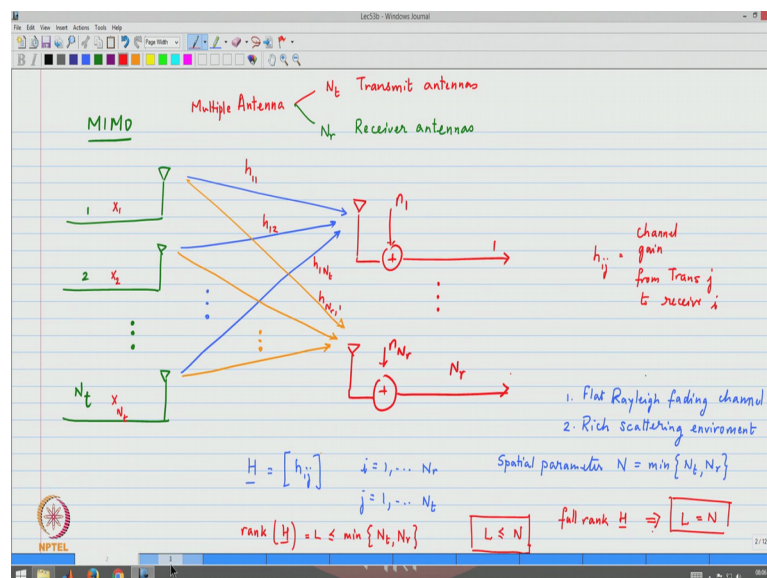 Lec53b - Windows Journal
File Edit View Insert Actions Tools Help
Page Width
B I
MIMO
Multiple Antenna
Nt Transmit antennas
Nr Receiver antennas
1 x1
2 x2
Nt xNr
h11
h12
h1Nt
hNr1
n1
1
nNr
Nr
hij = channel gain
from Trans j
to receive i
1. Flat Rayleigh fading channel
2. Rich scattering enviroment
H = [hij] i = 1, ... Nr
j = 1, ... Nt
Spatial parameter N = min {Nt, Nr}
rank (H) = L ≤ min {Nt, Nr}
L ≤ N
full rank H ⇒ L = N
NPTEL
2
3